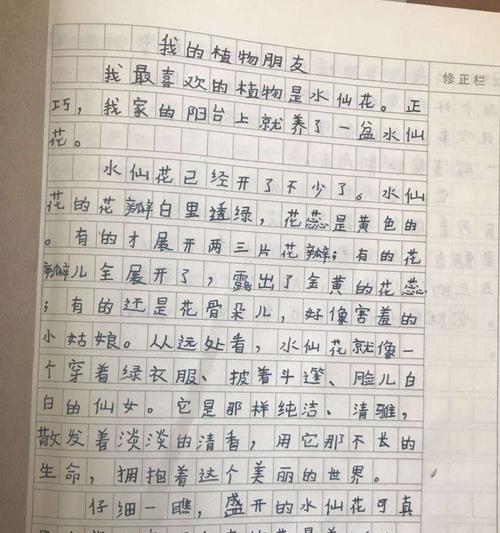 我的植物朋友
修正栏
我最喜欢的植物是水仙花。正
巧，我家的阳台上就养了一盆水仙
花。
水仙花已经开了不少了。水仙
花的花瓣白里透绿，花蕊是黄色的
。有的才展开两三片花瓣；有的花
瓣儿全展开了，露出了金黄的花蕊
；有的还是花骨朵儿，好像害羞的
小姑娘。从远处看，水仙花就像一
个穿着绿衣服、披着斗篷、脸儿白
白的仙女。它是那样纯洁、清雅，
散发着淡淡的清香，用它那不长的
生命，拥抱着这个美丽的世界。
仔细一瞧，盛开的水仙花可真